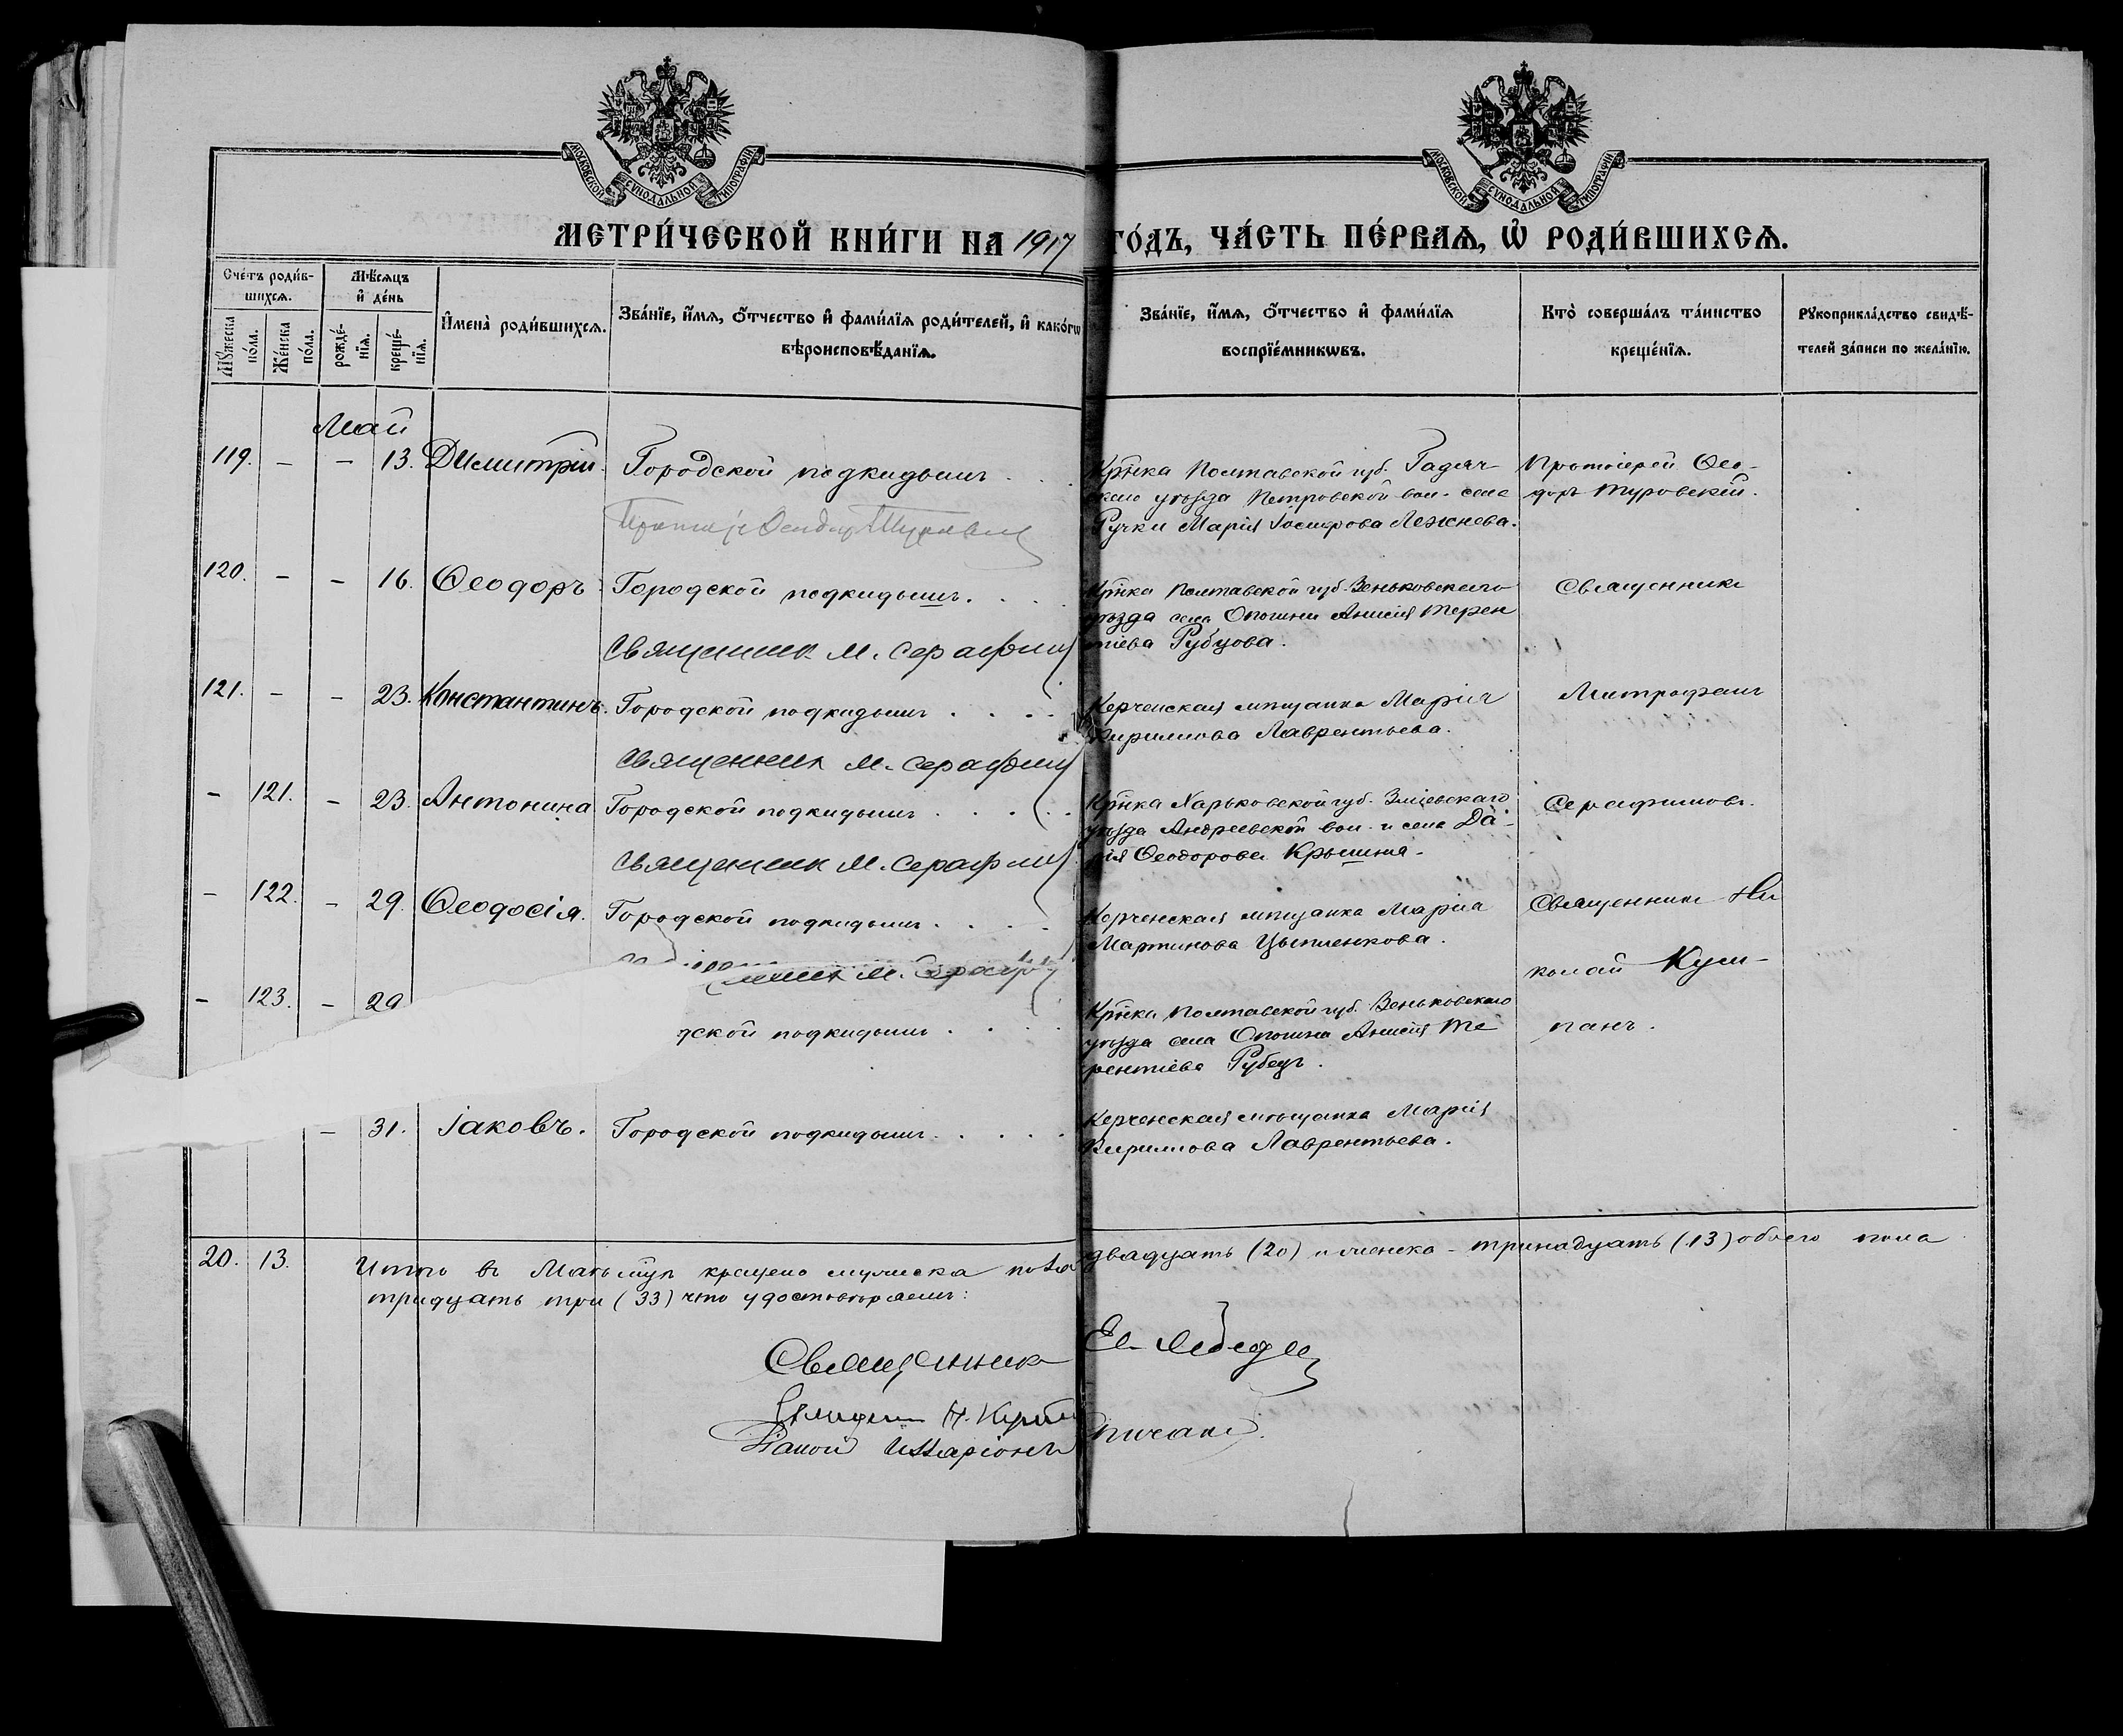 МОСКОВСКОЙ СѴНОДАЛЬНОЙ ТИПОГРАФІИ
МОСКОВСКОЙ СѴНОДАЛЬНОЙ ТИПОГРАФІИ
МЕТРИ́ЧЕСКОЙ КНИ́ГИ НА 1917 ГО́ДЪ, ЧА́СТЬ ПЕ́РВАѦ, Ѡ҆ РОДИ́ВШИХСѦ.
Сче́тъ роди́в-
шихсѧ.
Мѣ́сѧцъ
и҆ де́нь
Мꙋ́жеска
по́ла.
Же́нска
по́ла.
рожде́-
нїѧ.
креще́-
нїѧ.
И҆мена̀ роди́вшихсѧ.
Зва́нїе, и҆́мѧ, ѻ҆́тчество и҆ фами́лїѧ роди́телей, и҆ како́гѡ
вѣроисповѣ́данїѧ.
Зва́нїе, и҆́мѧ, ѻ҆́тчество и҆ фами́лїѧ
воспрїе́мникѡвъ.
Кто̀ соверша́лъ та́инство
креще́нїѧ.
Рꙋкоприкла́дство свидѣ́-
телей за́писи по жела́нїю.
Май
119. — — 13. Димитрій. Городской подкидышъ . . .
Кр̃нка Полтавской губ. Гадяч-
скаго уѣзда Петровской вол. села
Ручки Марія Іосифова Лежнева.
Протоіерей Ѳео-
доръ Туровскій.
120. — — 16. Ѳеодоръ. Городской подкидышъ. . . .
Священник М. Серафим
Кр̃нка Полтавской губ. Зеньковскаго
уѣзда села Опошни Анисія Терен
тіева Рубцова.
Священникъ
121. — — 23. Константинъ. Городской подкидышъ . . . .
Священник М. Серафим
Керченская мѣщанка Марія
Кириллова Лаврентьева.
Митрофанъ
— 121. — 23. Антонина Городской подкидышъ . . . .
Священник М. Серафим
Кр̃нка Харьковской губ. Зміевскаго
уѣзда Андреевской вол. и села Да-
рія Ѳеодорова Крышня.
Серафимовъ.
— 122. — 29. Ѳеодосія. Городской подкидышъ . . . .
М. Сераф
Керченская мѣщанка Марія
Мартинова Цыпленкова.
Священникъ Ни
колай Куш-
панъ.
— 123. — 29
дской подкидышъ . . . .
Кр̃нка Полтавской губ. Зеньковскаго
уѣзда села Опошни Анисія Те
рентіева Рубецъ.
— 31. Іаковъ. Городской подкидышъ. . . . .
Керченская мѣщанка Марія
Кириллова Лаврентьева.
20. 13. Итого въ Маѣ крещено мужеска пола двадцать (20) и женска - тринадцать (13) обоего пола
тридцать три (33) что удостовѣряемъ:
Священник